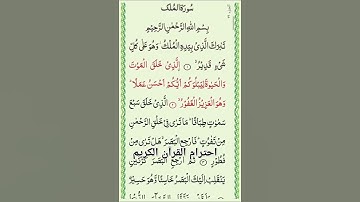 سُورَةُ الْمُلْك
بِسْمِ اللهِ الرَّحْمٰنِ الرَّحِيْمِ
تَبٰرَكَ الَّذِىْ بِيَدِهِ الْمُلْكُ وَهُوَ عَلٰى كُلِّ
شَىْءٍ قَدِيْرُ ۙ ۱ اۨلَّذِىْ خَلَقَ الْمَوْتَ
وَالْحَيٰوةَ لِيَبْلُوَكُمْ اَيُّكُمْ اَحْسَنُ عَمَلًا ؕ
وَهُوَ الْعَزِيْزُ الْغَفُوْرُ ۙ ۲ الَّذِىْ خَلَقَ سَبْعَ
سَمٰوٰتٍ طِبَاقًا ؕ مَا تَرٰى فِىْ خَلْقِ الرَّحْمٰنِ
مِنْ تَفٰوُتٍ ؕ فَارْجِعِ الْبَصَرَ ۙ هَلْ تَرٰى مِنْ
احترام القرآن الكريم
فُطُوْرٍ ۳ ثُمَّ ارْجِعِ الْبَصَرَ كَرَّتَيْنِ
يَنْقَلِبْ اِلَيْكَ الْبَصَرُ خَاسِئًا وَّهُوَ حَسِيْرٌ